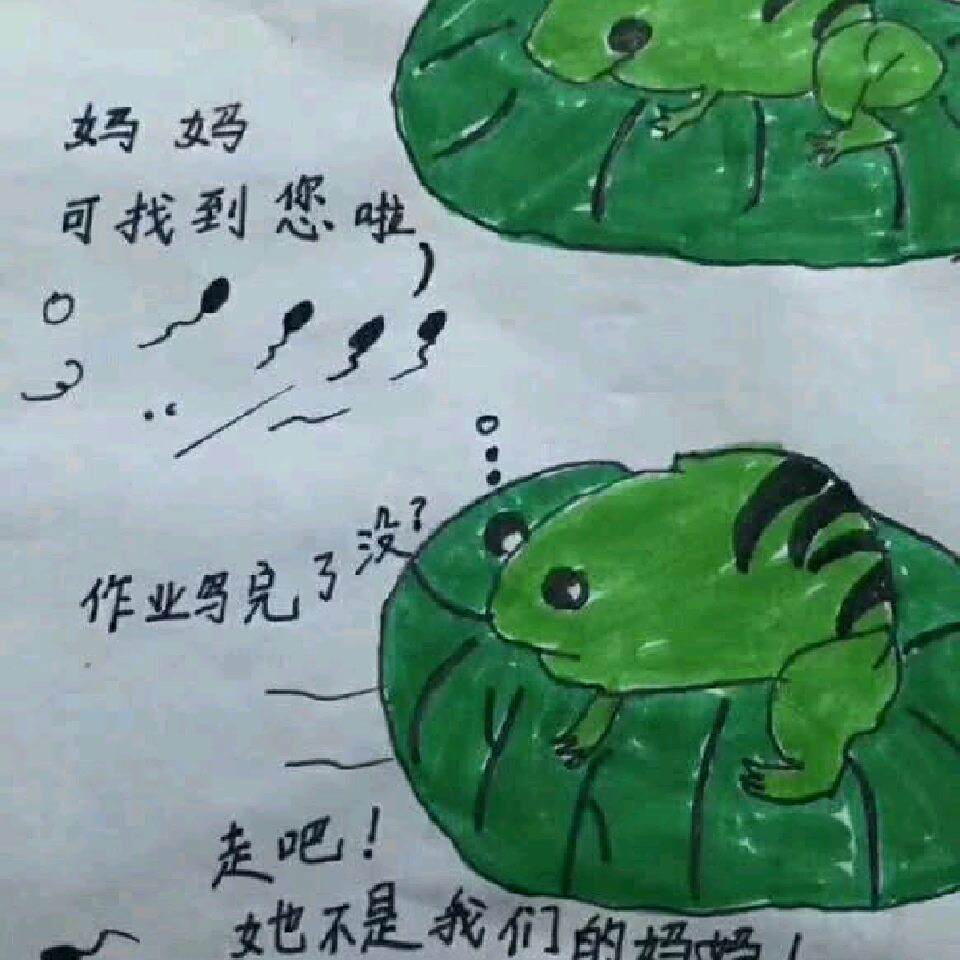 妈妈
可找到您啦
作业写完了没?
走吧!
她不是我们的妈妈!